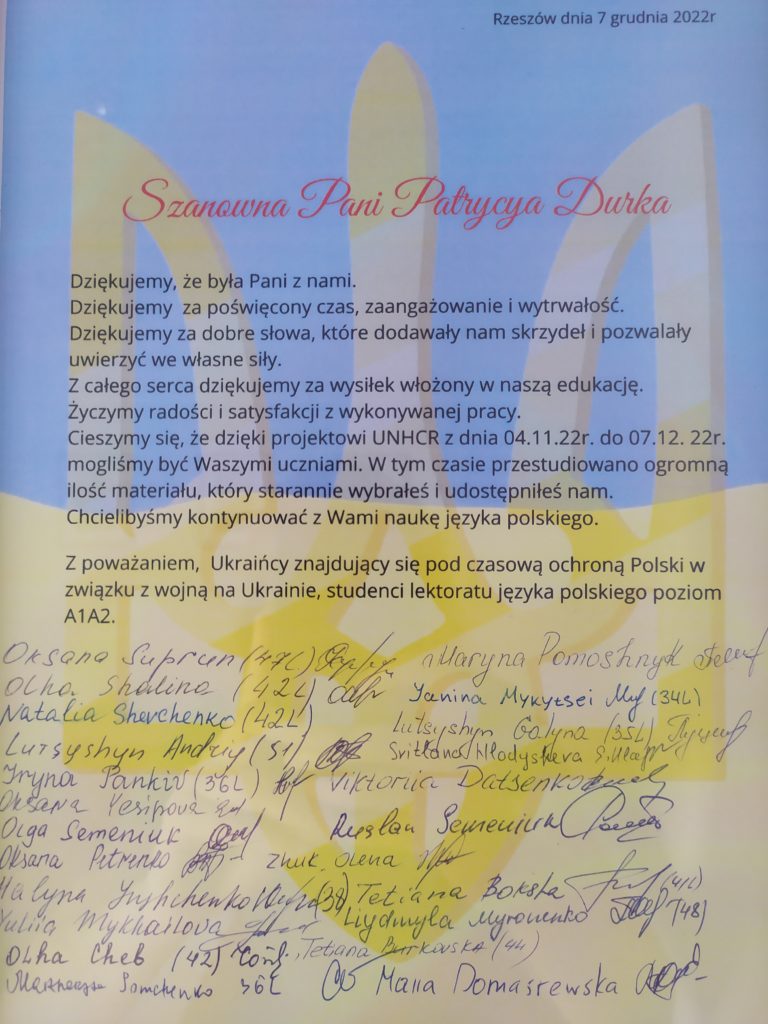 Rzeszów dnia 7 grudnia 2022r
Szanowna Pani Patrycya Durka
Dziękujemy, że była Pani z nami.
Dziękujemy za poświęcony czas, zaangażowanie i wytrwałość.
Dziękujemy za dobre słowa, które dodawały nam skrzydeł i pozwalały
uwierzyć we własne siły.
Z całego serca dziękujemy za wysiłek włożony w naszą edukację.
Życzymy radości i satysfakcji z wykonywanej pracy.
Cieszymy się, że dzięki projektowi UNHCR z dnia 04.11.22r. do 07.12. 22r.
mogliśmy być Waszymi uczniami. W tym czasie przestudiowano ogromną
ilość materiału, który starannie wybrałeś i udostępniłeś nam.
Chcielibyśmy kontynuować z Wami naukę języka polskiego.
Z poważaniem, Ukraińcy znajdujący się pod czasową ochroną Polski w
związku z wojną na Ukrainie, studenci lektoratu języka polskiego poziom
A1A2.
Oksana Suprun (47L) Maryna Pomoshnyk
Olha Shalina (42L) Janina Mykytsei (34L)
Natalia Shevchenko (42L) Lutsyshyn Galyna (35L)
Lutsyshyn Andriy (51) Svitlana
Iryna Pankiv (36L) Viktoriia Datsenko
Oksana Yesipova
Olga Semeniuk Ruslan Semeniuk
Oksana Petrenko Zhuk Olena
Halyna (38) Tetiana Boksha (41L)
Yuliia Mykhailova Liydmyla Myronenko (48)
Olha Cheb (42) Tetiana Burkovska (44)
36L Maria Domasrewska